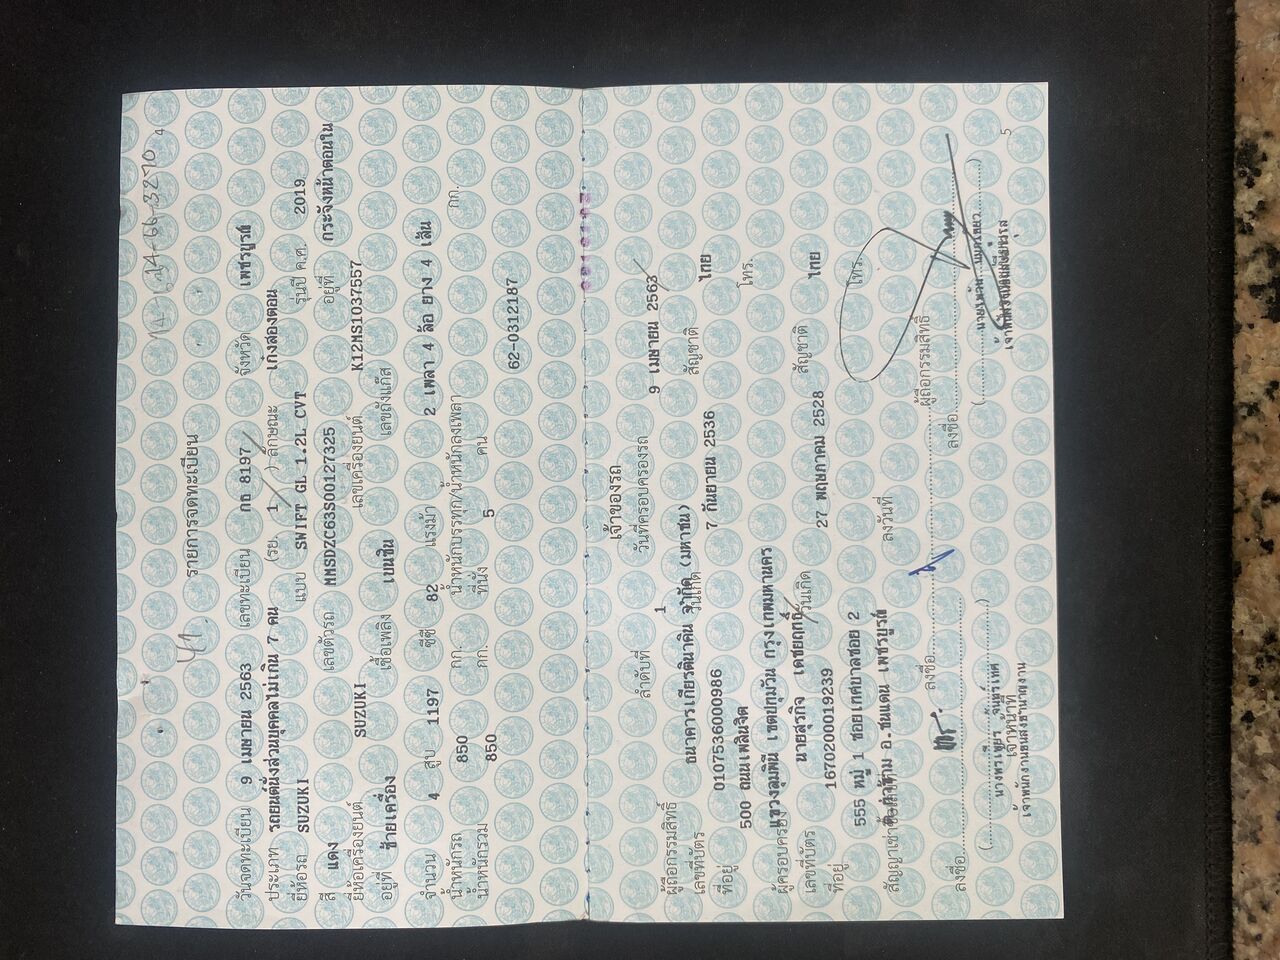 4
14-66-3270
รายการจดทะเบียน
วันจดทะเบียน 9 เมษายน 2563 เลขทะเบียน กธ 8197 จังหวัด เพชรบูรณ์
ประเภท รถยนต์นั่งส่วนบุคคลไม่เกิน 7 คน (รย. 1 ) ลักษณะ เก๋งสองตอน
ยี่ห้อรถ SUZUKI แบบ SWIFT GL 1.2L CVT รุ่นปี ค.ศ. 2019
สี แดง เลขตัวรถ MMSDZC63S00127325 อยู่ที่ กระจังหน้าตอนใน
ยี่ห้อเครื่องยนต์ SUZUKI เลขเครื่องยนต์ K12MS1037557
อยู่ที่ ซ้ายเครื่อง เชื้อเพลิง เบนซิน เลขถังแก๊ส
จำนวน 4 สูบ 1197 ซีซี 82 แรงม้า 2 เพลา 4 ล้อ ยาง 4 เส้น
น้ำหนักรถ 850 กก. น้ำหนักบรรทุก/น้ำหนักลงเพลา กก.
น้ำหนักรวม 850 กก. ที่นั่ง 5 คน
62-0312187
เจ้าของรถ
ลำดับที่ 1 วันที่ครอบครองรถ 9 เมษายน 2563
ผู้ถือกรรมสิทธิ์ ธนาคารเกียรตินาคิน จำกัด (มหาชน)
เลขที่บัตร 0107536000986 วันเกิด 7 กันยายน 2536 สัญชาติ ไทย
ที่อยู่ 500 ถนนเพลินจิต โทร.
แขวงลุมพินี เขตปทุมวัน กรุงเทพมหานคร
ผู้ครอบครอง นายสุรกิจ เดชยฤทธิ์
เลขที่บัตร 1670200019239 วันเกิด 27 พฤษภาคม 2528 สัญชาติ ไทย
ที่อยู่ 555 หมู่ 1 ซอยเทศบาลซอย 2 โทร.
อ.ชนแดน เพชรบูรณ์
สัญญาเช่าซื้อเลขที่ ลงวันที่ ผู้ถือกรรมสิทธิ์
ลงชื่อ ลงชื่อ ลงชื่อ
เจ้าหน้าที่
เจ้าพนักงานขนส่งชำนาญงาน
5